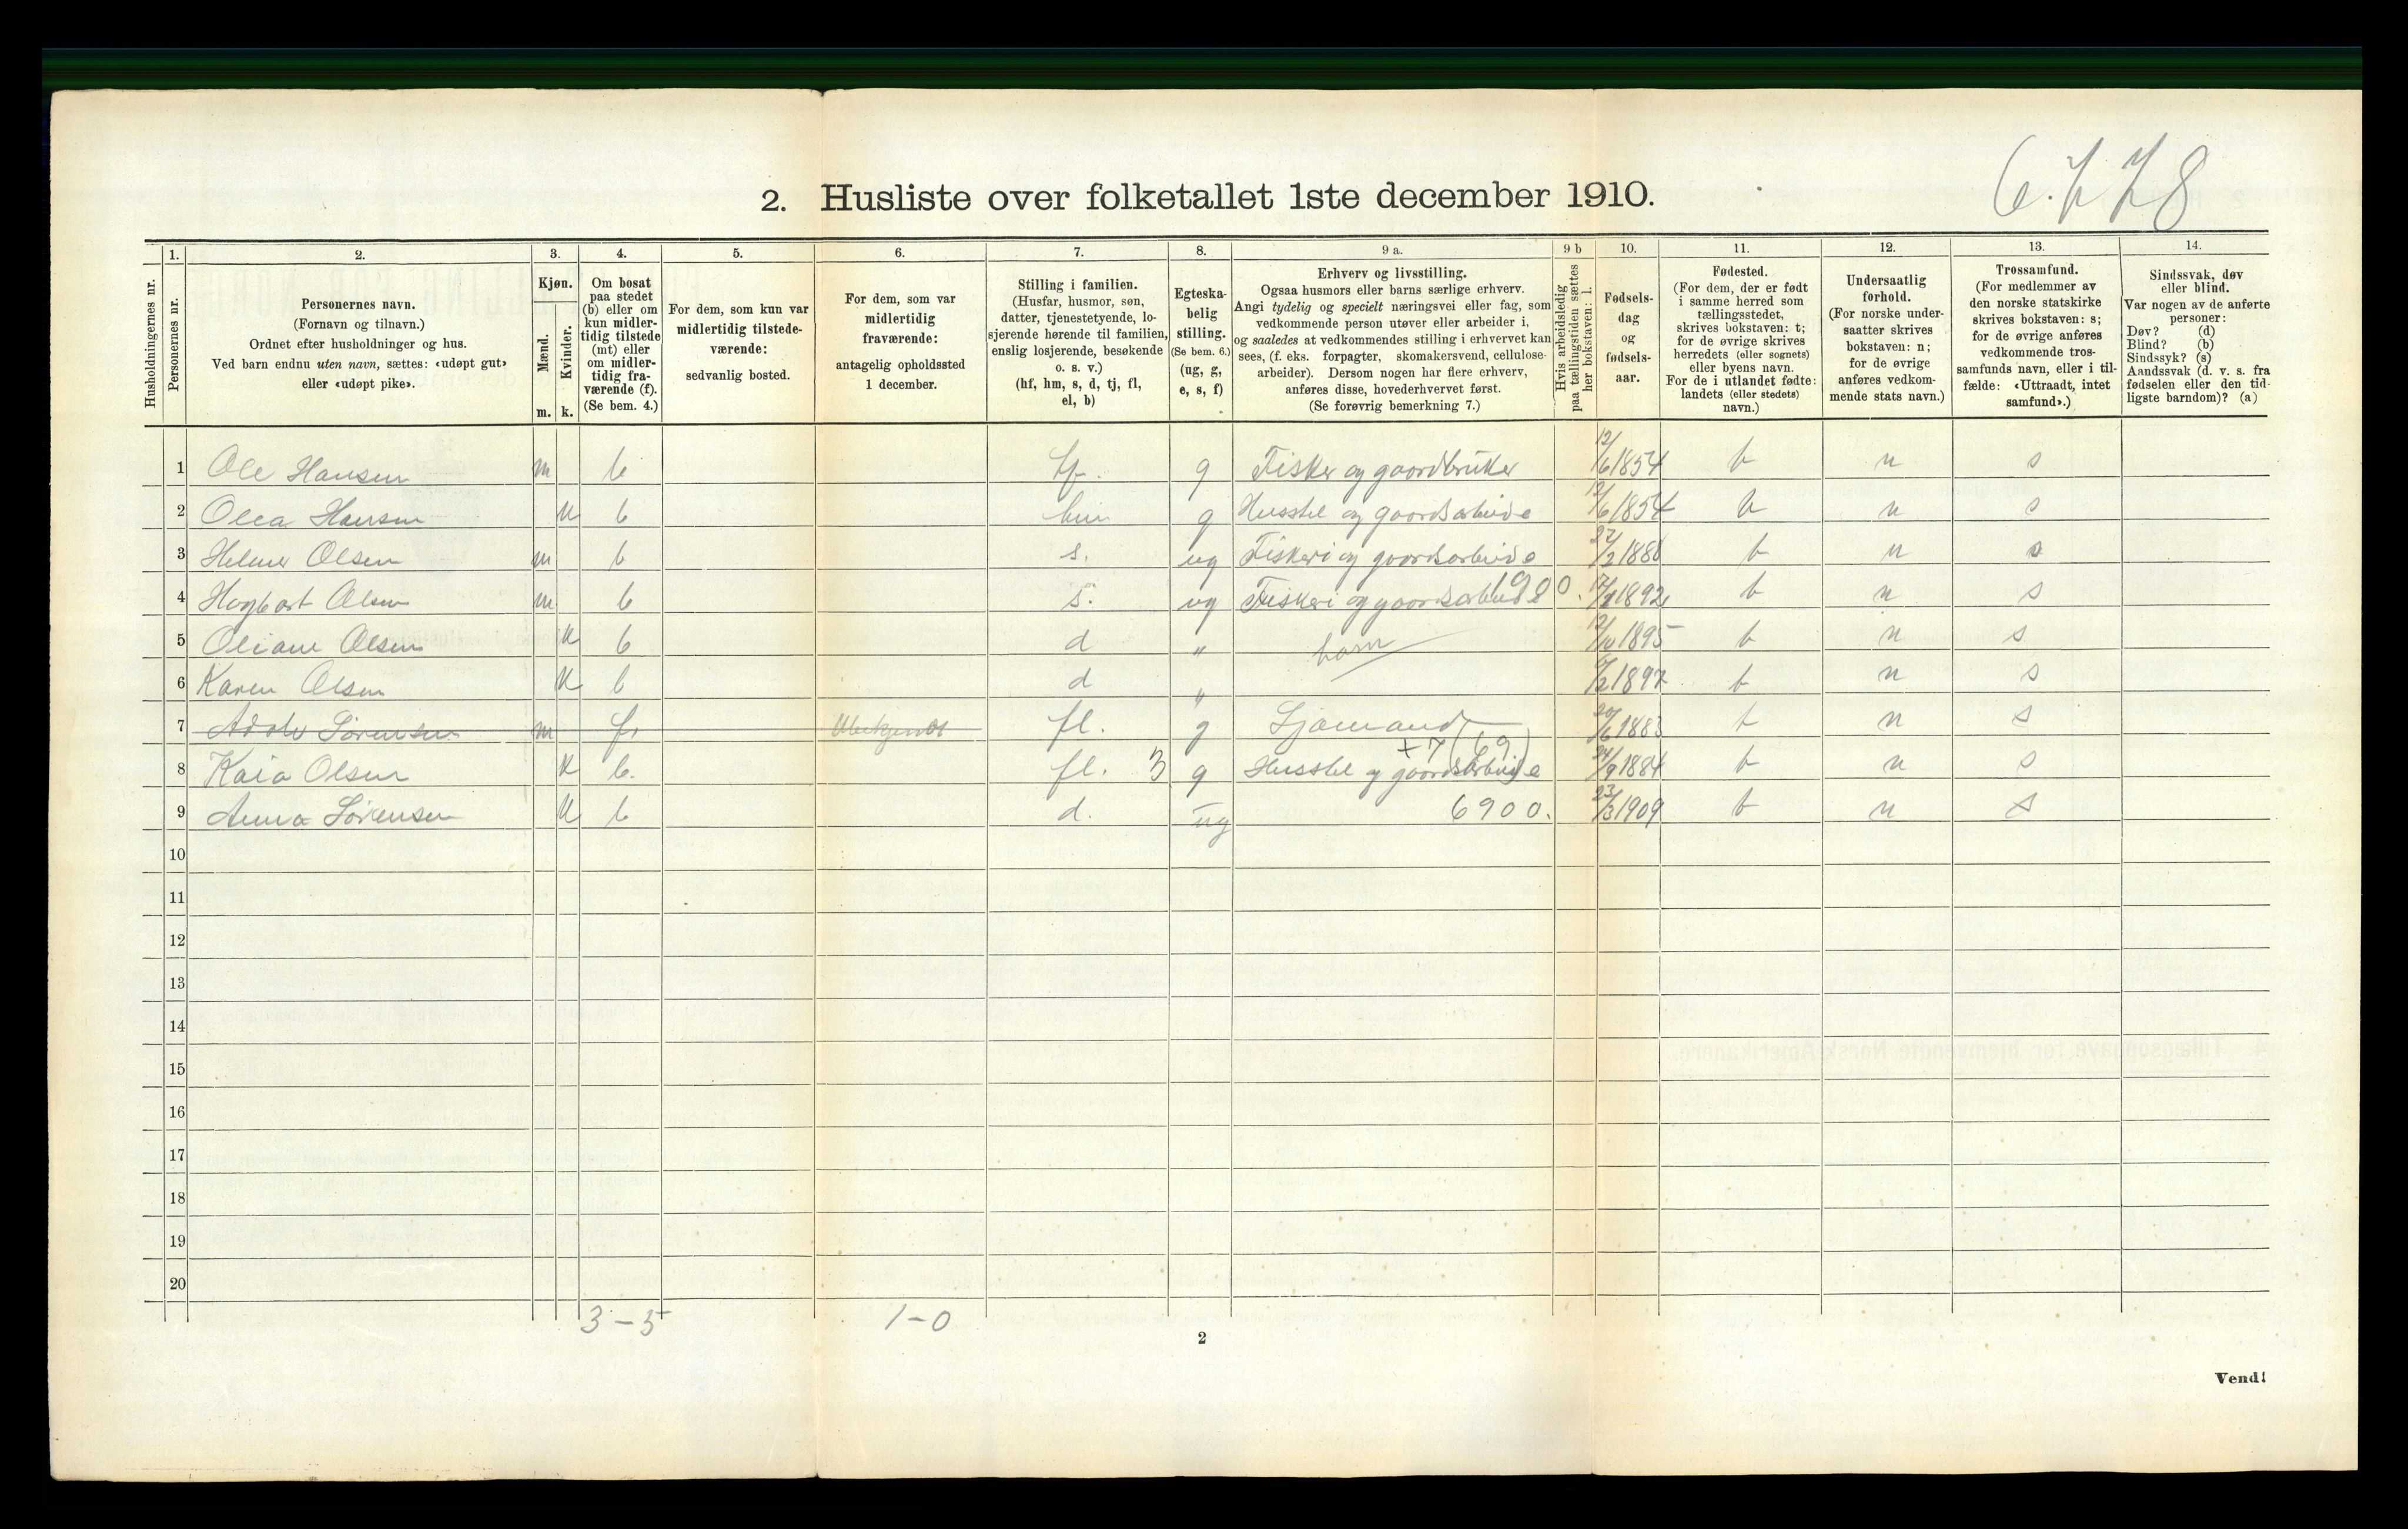 6.778
2. Husliste over folketallet 1ste december 1910.
Husholdningernes nr.
1. Personernes nr.
2. Personernes navn.
(Fornavn og tilnavn.)
Ordnet efter husholdninger og hus.
Ved barn endnu uten navn, sættes: «udøpt gut»
eller «udøpt pike».
3. Kjøn.
Mænd. m.
Kvinder. k.
4. Om bosat
paa stedet
(b) eller om
kun midler-
tidig tilstede
(mt) eller
om midler-
tidig fra-
værende (f).
(Se bem. 4.)
5. For dem, som kun var
midlertidig tilstede-
værende:
sedvanlig bosted.
6. For dem, som var
midlertidig
fraværende:
antagelig opholdssted
1 december.
7. Stilling i familien.
(Husfar, husmor, søn,
datter, tjenestetyende, lo-
sjerende hørende til familien,
enslig losjerende, besøkende
o. s. v.)
(hf, hm, s, d, tj, fl,
el, b)
8. Egteska-
belig
stilling.
(Se bem. 6.)
(ug, g,
e, s, f)
9 a. Erhverv og livsstilling.
Ogsaa husmors eller barns særlige erhverv.
Angi tydelig og specielt næringsvei eller fag, som
vedkommende person utøver eller arbeider i,
og saaledes at vedkommendes stilling i erhvervet kan
sees, (f. eks. forpagter, skomakersvend, cellulose-
arbeider). Dersom nogen har flere erhverv,
anføres disse, hovederhvervet først.
(Se forøvrig bemerkning 7.)
9 b Hvis arbeidsledig
paa tællingstiden sættes
her bokstaven: l.
10. Fødsels-
dag
og
fødsels-
aar.
11. Fødested.
(For dem, der er født
i samme herred som
tællingsstedet,
skrives bokstaven: t;
for de øvrige skrives
herredets (eller sognets)
eller byens navn.
For de i utlandet fødte:
landets (eller stedets)
navn.)
12. Undersaatlig
forhold.
(For norske under-
saatter skrives
bokstaven: n;
for de øvrige
anføres vedkom-
mende stats navn.)
13. Trossamfund.
(For medlemmer av
den norske statskirke
skrives bokstaven: s;
for de øvrige anføres
vedkommende tros-
samfunds navn, eller i til-
fælde: «Uttraadt, intet
samfund».)
14. Sindssvak, døv
eller blind.
Var nogen av de anførte
personer:
Døv? (d)
Blind? (b)
Sindssyk? (s)
Aandssvak (d. v. s. fra
fødselen eller den tid-
ligste barndom)? (a)
1 Ole Hansen m b hf. g Fisker og gaardbruker 12/6 1854 t n s
2 Olea Hansen k b hm g Husstel og gaardsarbeide 12/6 1854 t n s
3 Helmer Olsen m b s. ug Fiskeri og gaardsarbeide 27/2 1888 t n s
4 Hagbart Olsen m b s. ug Fiskeri og gaardsarbeide 1900. 1892 t n s
5 Oliane Olsen k b d " barn 12/10 1895 t n s
6 Karen Olsen k b d " 6/2 1897 t n s
7 Adolv Sørensen m f. Ubekjendt fl. g Sjømand 20/6 1883 t n s
8 Kaia Olsen k b. fl. 3 g Husstel og gaardsarbeide +7 (69) 24/9 1884 t n s
9 Anna Sørensen k b d. ug 6900. 23/3 1909 t n s
10
11
12
13
14
15
16
17
18
19
20
3 – 5 1 – 0
2
Vend!